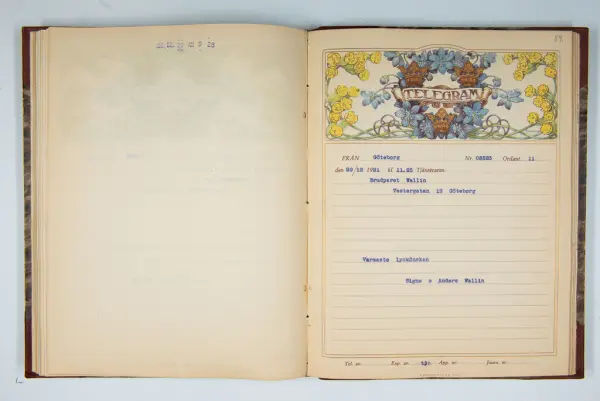 TELEGRAM
FRÅN Göteborg Nr. Ordant 11
den 29/12 1921 kl 11.25 Tjänsteanm.
Brudparet Wallin
Vestergatan 12 Göteborg
Varmaste lyckönskan
Signe o Anders Wallin
Tel. nr. Exp. nr. App. nr. Journ. nr.